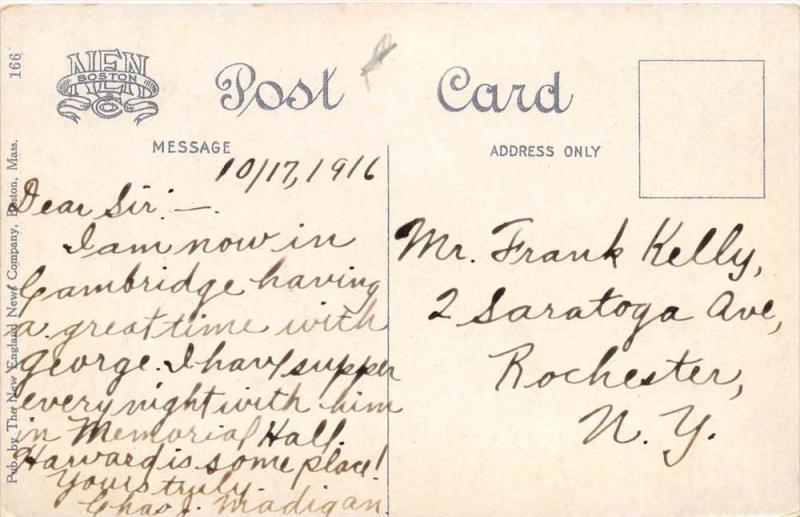 166
Pub. by The New England News Company, Boston, Mass.
NEN
BOSTON
Co
Post Card
MESSAGE
ADDRESS ONLY
10/17, 1916
Dear Sir: —
I am now in
Cambridge having
a great time with
George. I have supper
every night with him
in Memorial Hall.
Harvard is some place!
Yours truly
Chas J. Madigan
Mr. Frank Kelly,
2 Saratoga Ave,
Rochester,
N. Y.